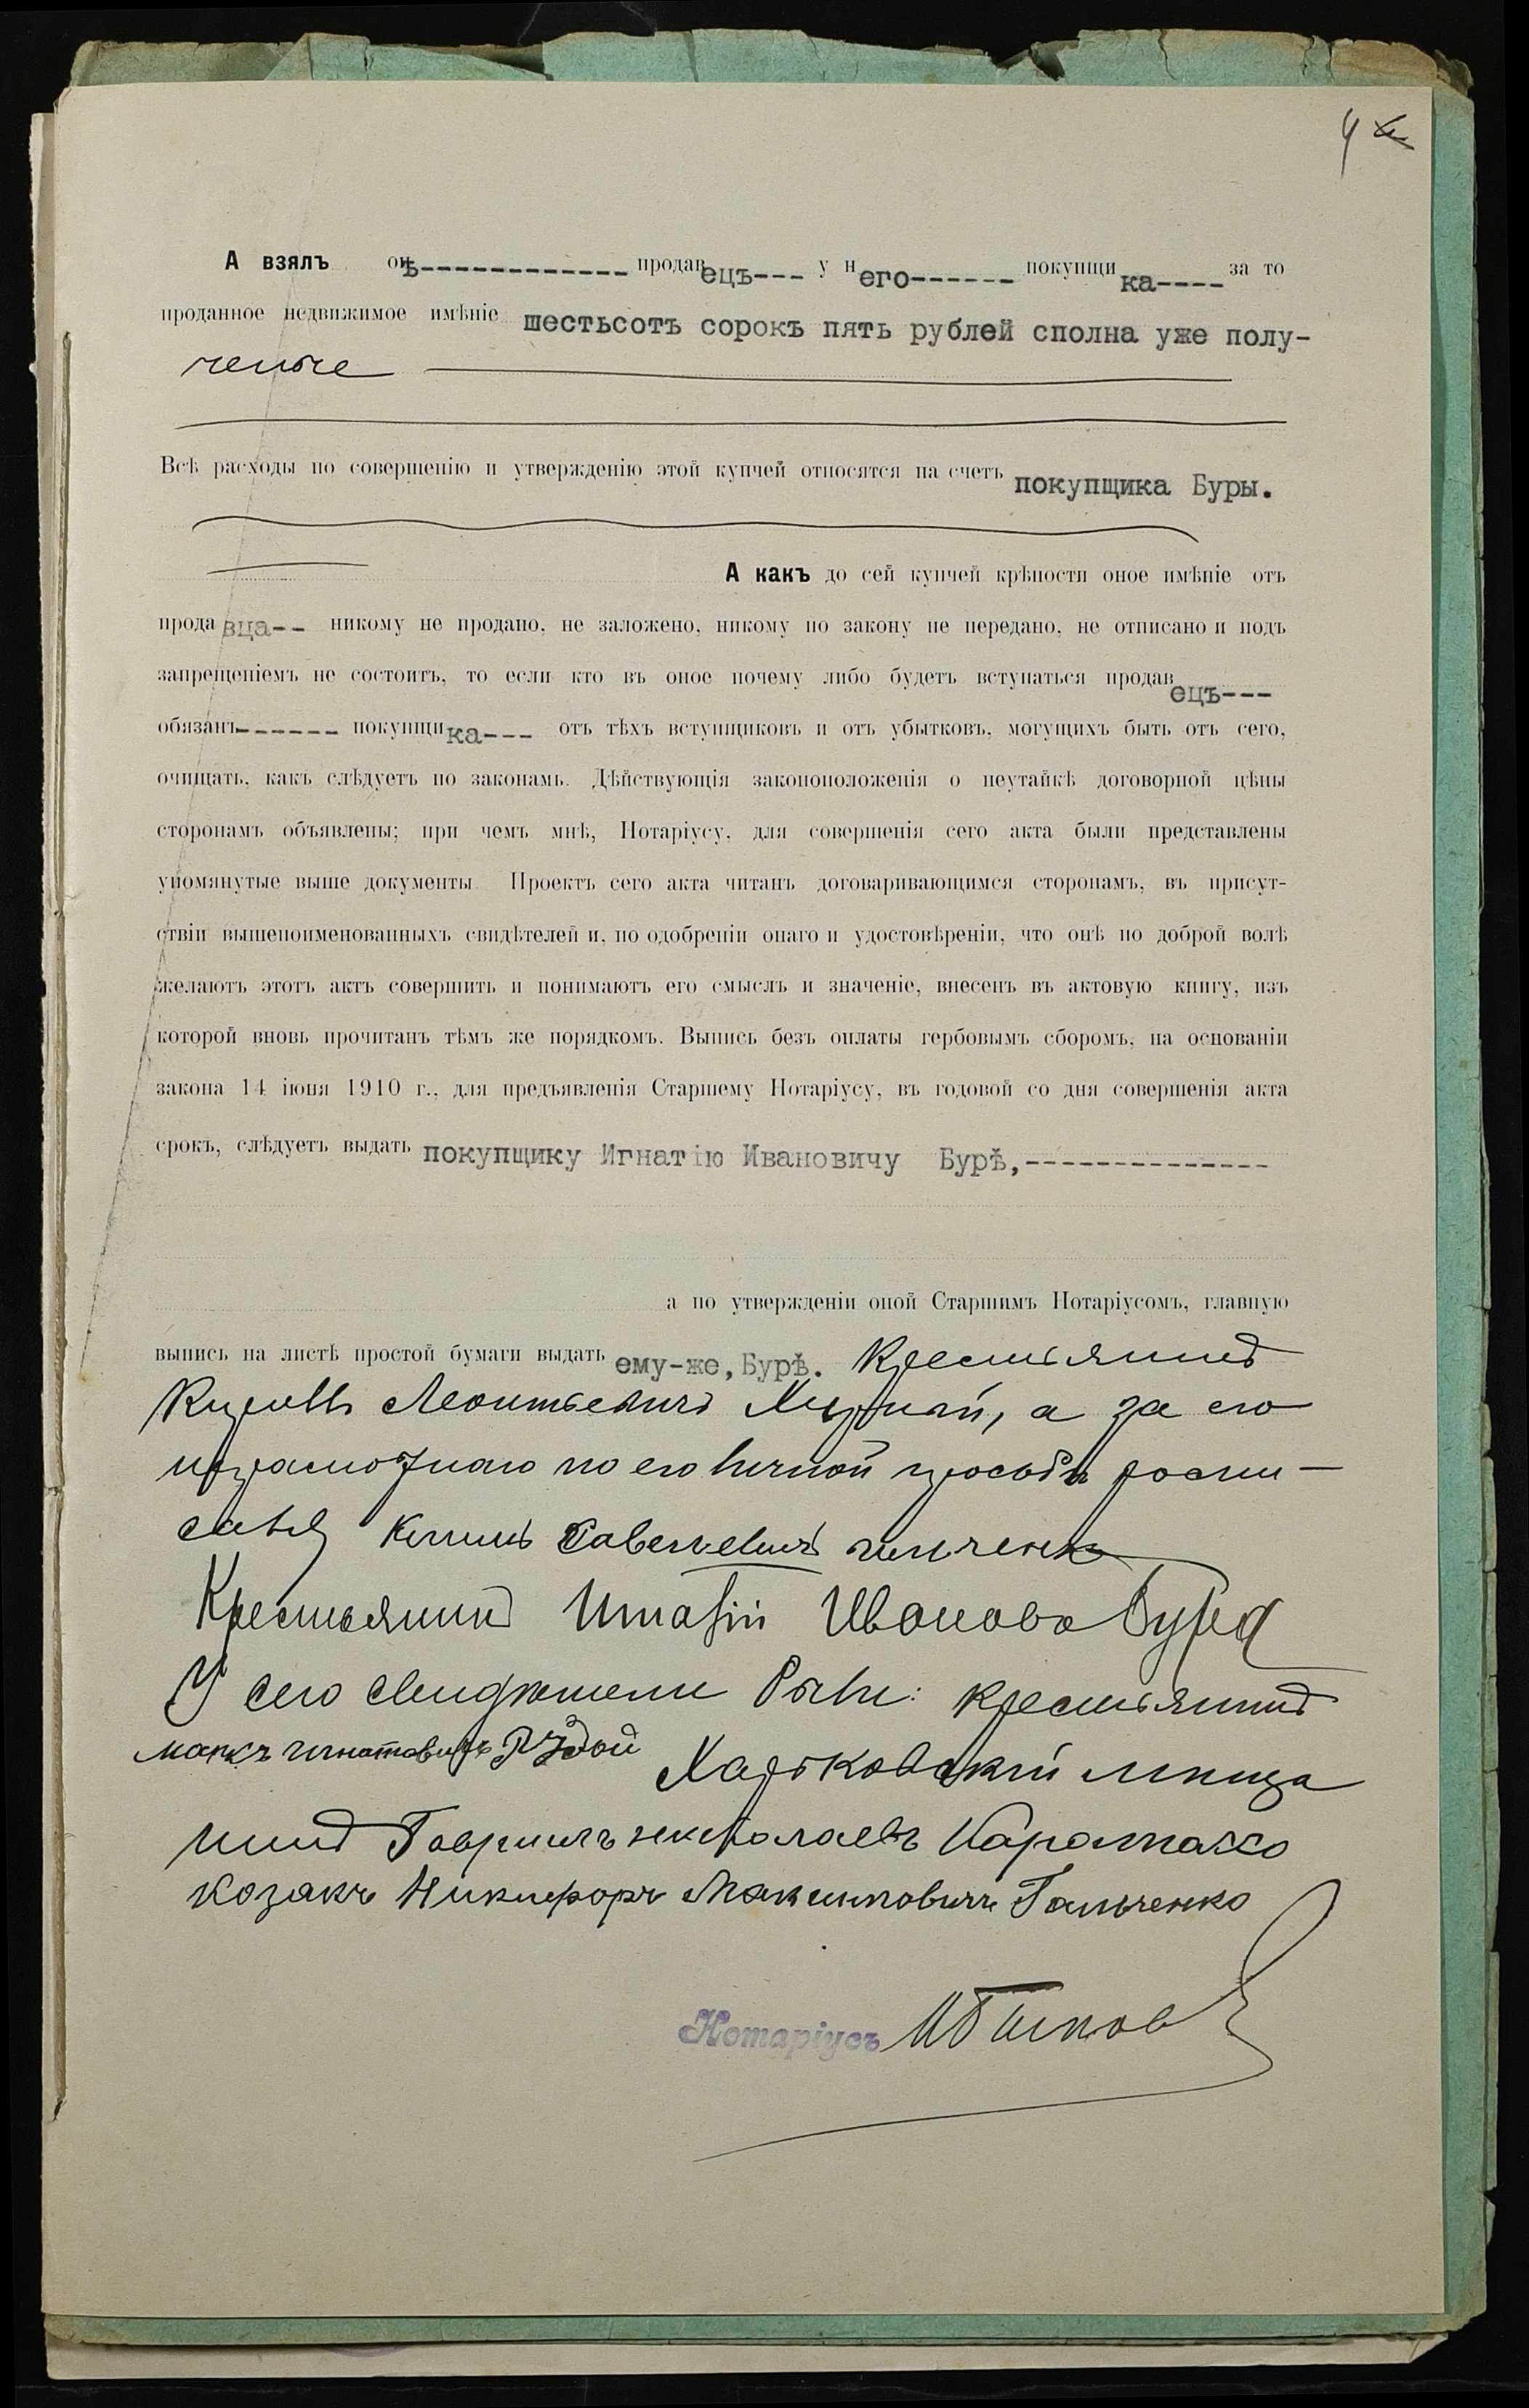 4
А взялъ онъ------------- продавецъ--- у него------ покупщика---- за то
проданное недвижимое имѣніе шестьсотъ сорокъ пять рублей сполна уже полу-
ченые
Всѣ расходы по совершенію и утвержденію этой купчей относятся на счетъ покупщика Буры.
А какъ до сей купчей крѣпости оное имѣніе отъ
продавца-- никому не продано, не заложено, никому по закону не передано, не отписано и подъ
запрещеніемъ не состоитъ, то если кто въ оное почему либо будетъ вступаться продавецъ---
обязанъ------ покупщика--- отъ тѣхъ вступщиковъ и отъ убытковъ, могущихъ быть отъ сего,
очищать, какъ слѣдуетъ по законамъ. Дѣйствующія законоположенія о неутайкѣ договорной цѣны
сторонамъ объявлены; при чемъ мнѣ, Нотаріусу, для совершенія сего акта были представлены
упомянутые выше документы. Проектъ сего акта читанъ договаривающимся сторонамъ, въ присут-
ствіи вышепоименованныхъ свидѣтелей и, по одобреніи онаго и удостовѣреніи, что онѣ по доброй волѣ
желаютъ этотъ актъ совершить и понимаютъ его смыслъ и значеніе, внесенъ въ актовую книгу, изъ
которой вновь прочитанъ тѣмъ же порядкомъ. Выпись безъ оплаты гербовымъ сборомъ, на основаніи
закона 14 іюня 1910 г., для предъявленія Старшему Нотаріусу, въ годовой со дня совершенія акта
срокъ, слѣдуетъ выдать покупщику Игнатію Ивановичу Бурѣ,--------------
а по утвержденіи оной Старшимъ Нотаріусомъ, главную
выпись на листѣ простой бумаги выдать ему-же, Бурѣ. Крестьянинъ
Леонтьевичъ а за его
неграмотнаго по его личной просьбѣ роспи-
сался Савельевичъ
Крестьянинъ Игнатій Иванова Бура
У сего свидѣтели были: крестьянинъ
Марко Игнатовичъ Рудой Харьковскій мѣща
нинъ Гавріилъ Николаевъ
козакъ Никифоръ Максимовичъ Гальченко
Нотаріусъ